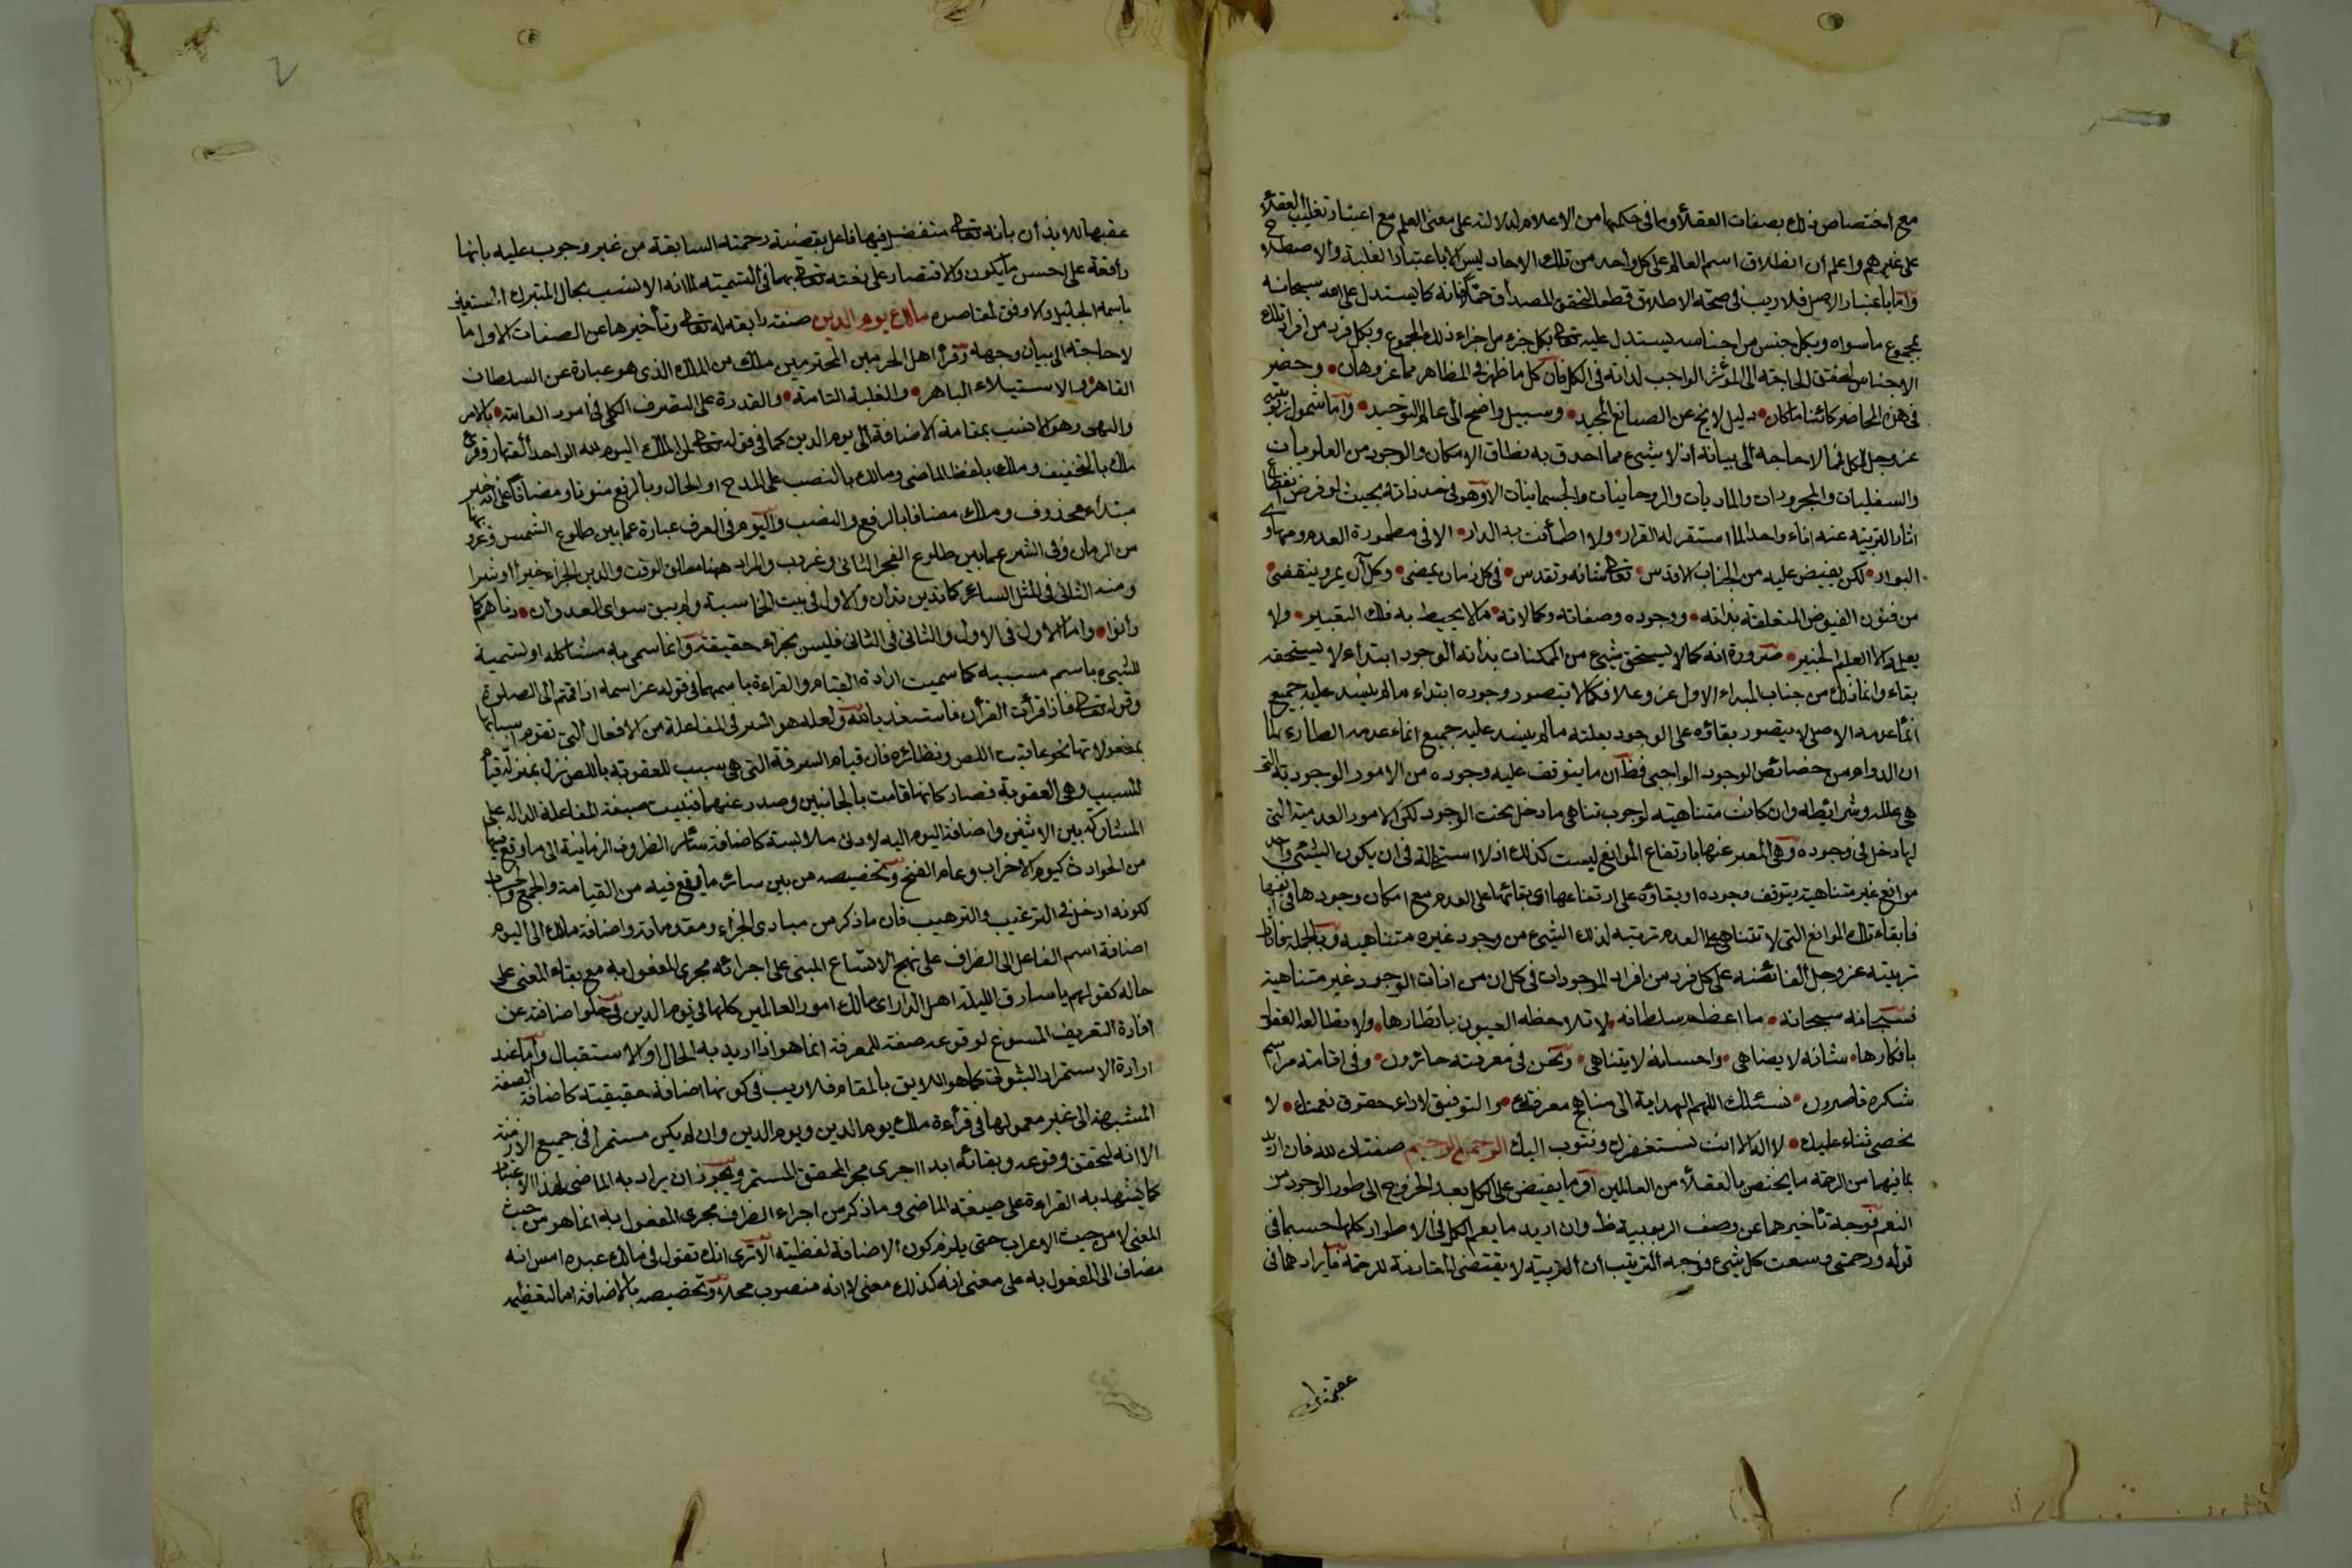 مع اختصاص ذلك بصفات العقلاء وما في حكمها من الاعلام لدلالته على معنى العلم مع اعتبار تغليب العقلاء
على غيرهم واعلم ان انطلاق اسم العالم على كل واحد من تلك الاحاد ليس الا باعتبار الغلبة والاصطلاح
واما باعتبار الاصل فلا ريب في صحة الاطلاق قطعا لتحقق المصداق حتما فانه كما يستدل على الله سبحانه
بمجموع ما سواه وبكل جنس من اجناسه يستدل عليه تعالى بكل جزء من اجزاء ذلك المجموع وبكل فرد من افراد تلك
الاجناس لتحقق الحاجة الى المؤثر الواجب لذاته في الكل فان كل ما ظهر في المظاهر مما عز وهان • وحضر
في هذه المحاضر كائنا ما كان • دليل لائح على الصانع المجيد • وسبيل واضح الى عالم التوحيد • واما شمول ربوبيته
عز وجل للكل فمما لا حاجة الى بيانه اذ لا شيء مما احدق به نطاق الامكان والوجود من العلويات
والسفليات والمجردات والماديات والروحانيات والجسمانيات الا وهو في حد ذاته بحيث لو فرض انقطاع
اثار التربية عنه اناء واحدا لما استقر له القرار • ولا اطمأنت به الدار • الا في مطمورة العدم ومهاوي
البوار • لكن يفيض عليه من الجناب الاقدس • تعالى شانه وتقدس • في كل زمان يمضى • وكل آن يمر وينقضى •
من فنون الفيوض المتعلقة بذاته • ووجوده وصفاته وكمالاته • ما لا يحيط به فلك التعبير • ولا
يعلمه الا العليم الخبير • ضرورة انه كما لا يستحق شيء من الممكنات بذاته الوجود ابتداء لا يستحقه
بقاء وانما ذلك من جناب المبداء الاول عز وعلا فكما لا يتصور وجوده ابتداء ما لم ينسد عليه جميع
انحاء عدمه الاصلى لا يتصور بقاؤه على الوجود بعلته ما لم ينسد عليه جميع انحاء عدمه الطارى لما
ان الدوام من خصائص الوجود الواجبى فظ ان ما يتوقف عليه وجوده من الامور الوجودية التى
هى علله وشرائطه وان كانت متناهية لوجوب تناهى ما دخل تحت الوجود لكن الامور العدمية التى
لها دخل في وجوده وهى المعبر عنها بارتفاع الموانع ليست كذلك اذ لا استحالة في ان يكون لشئ واحد
موانع غير متناهية يتوقف وجوده او بقاؤه على ارتفاعها اى بقائها على العدم مع امكان وجودها في نفسها
فابقاء تلك الموانع التى لا تتناهى على العدم تربية لذلك الشيء من وجوه غير متناهية وبالجملة فاثار
تربيته عز وجل الفائضة على كل فرد من افراد الموجودات في كل ان من انات الوجود غير متناهية
فسبحانه سبحانه • ما اعظم سلطانه • لا تلاحظه العيون بانظارها • ولا تطالعه العقول
بافكارها • شانه لا يضاهى • واحسانه لا يتناهى • ونحن في معرفته حائرون • وفي اقامة مراسم
شكره قاصرون • نسئلك اللهم الهداية الى مناهج معرفتك • والتوفيق لاداء حقوق نعمتك • لا
نحصى ثناء عليك • لا اله الا انت نستغفرك ونتوب اليك الرحمن الرحيم صفتان لله فان اريد
بما فيهما من الرحمة ما يختص بالعقلاء من العالمين او ما يفيض على الكل بعد الخروج الى طور الوجود من
النعم فوجه تاخيرهما عن وصف الربوبية ظ وان اريد ما يعم الكل في الاطوار كلها حسبما في
قوله ورحمتى وسعت كل شيء فوجه الترتيب ان التربية لا يقتضى المقارنة للرحمة فايرادهما في
عقبها
عقبها للايذان بانه تعالى متفضل فيها فاعل بقضية رحمته السابقة من غير وجوب عليه بانها
واقعة على احسن ما يكون والاقتصار على نعته تعالى بهما في التسمية لما انه الانسب بحال المتبرك المستعين
باسمه الجليل والاوفق لمقاصده مالك يوم الدين صفة رابعة له تعالى وتأخيرها عن الصفات الاول مما
لا حاجة الى بيان وجهه وقرأ اهل الحرمين المحترمين ملك من الملك الذى هو عبارة عن السلطان
القاهر • والاستيلاء الباهر • والغلبة التامة • والقدرة على التصرف الكلى في امور العامة • بالامر
والنهى وهو الانسب بمقام الاضافة الى يوم الدين كما في قوله تعالى لمن الملك اليوم لله الواحد القهار وقرئ
ملك بالتخفيف وملك بلفظ الماضى ومالك بالنصب على المدح او الحال وبالرفع منونا ومضافا على انه خبر
مبتداء محذوف وملك مضافا بالرفع والنصب واليوم في العرف عبارة عما بين طلوع الشمس وغروبها
من الزمان وفي الشرع عما بين طلوع الفجر الثانى وغروب والمراد ههنا مطلق الوقت والدين الجزاء خيرا او شرا
ومنه الثانى في المثل السائر كما تدين تدان والاول في بيت الحماسة ولم يبق سوى العدوان • دناهم كما
دانوا • واما الاول في الاول والثانى في الثانى فليس بجزاء حقيقة وانما سمى به مشاكلة او تسمية
للشيء باسم مسببه كما سميت ارادة القيام والقراءة باسمهما في قوله عز اسمه اذا قمتم الى الصلوة
وقوله تعالى فاذا قرأت القرأن فاستعذ بالله ولعله هو السر في المفاعلة من الافعال التى تقوم اسبابها
بمفعولاتها نحو عاقبت اللص ونظائره فان قيام السرقة التى هى سبب للعقوبة باللص نزل بمنزلة قيام
المسبب وهى العقوبة فصار كانها قامت بالجانبين وصدر عنهما فبنيت صيغة المفاعلة الدالة على
المشاركة بين الاثنين واضافة اليوم اليه لادنى ملابسة كاضافة سائر الظروف الزمانية الى ما وقع فيها
من الحوادث كيوم الاحزاب وعام الفتح وتخصيصه من بين سائر ما يقع فيه من القيامة والجمع والحساب
لكونه ادخل في الترغيب والترهيب فان ما ذكر من مبادى الجزاء ومقدماته واضافة مالك الى اليوم
اضافة اسم الفاعل الى الظرف على نهج الاتساع المبنى على اجرائه مجرى المفعول به مع بقاء المعنى على
حاله كقولهم يا سارق الليلة اهل الدار اى مالك امور العالمين كلها في يوم الدين وخلو اضافته عن
افادة التعريف المسوغ لوقوعه صفة للمعرفة انما هو اذا اريد به الحال او الاستقبال واما عند
ارادة الاستمرار الثبوتى كما هو اللايق بالمقام فلا ريب في كونها اضافة حقيقية كاضافة الصفة
المشبهة الى غير معمولها في قرأءة ملك يوم الدين ويوم الدين وان لم يكن مستمرا في جميع الازمنة
الا انه لتحقق وقوعه وبقائه ابدا اجرى مجرى المحقق المستمر ويجوز ان يراد به الماضى بهذا الاعتبار
كما يشهد به القراءة على صيغة الماضى وما ذكر من اجراء الظرف مجرى المفعول به انما هو من حيث
المعنى لا من حيث الاعراب حتى يلزم كون الاضافة لفظية الا ترى انك تقول في مالك عبده امس انه
مضاف الى المفعول به على معنى انه كذلك معنى لا انه منصوب محلا وتخصيصه بالاضافة اما لتعظيم